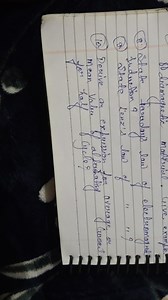 diamagnetic material. Give example
⑧ State Faraday's law of electromagnetic
Induction?
⑨ State Lenz's law of " "?
⑩ Derive an expression for average or
Mean Value of alternating current
for half cycle?